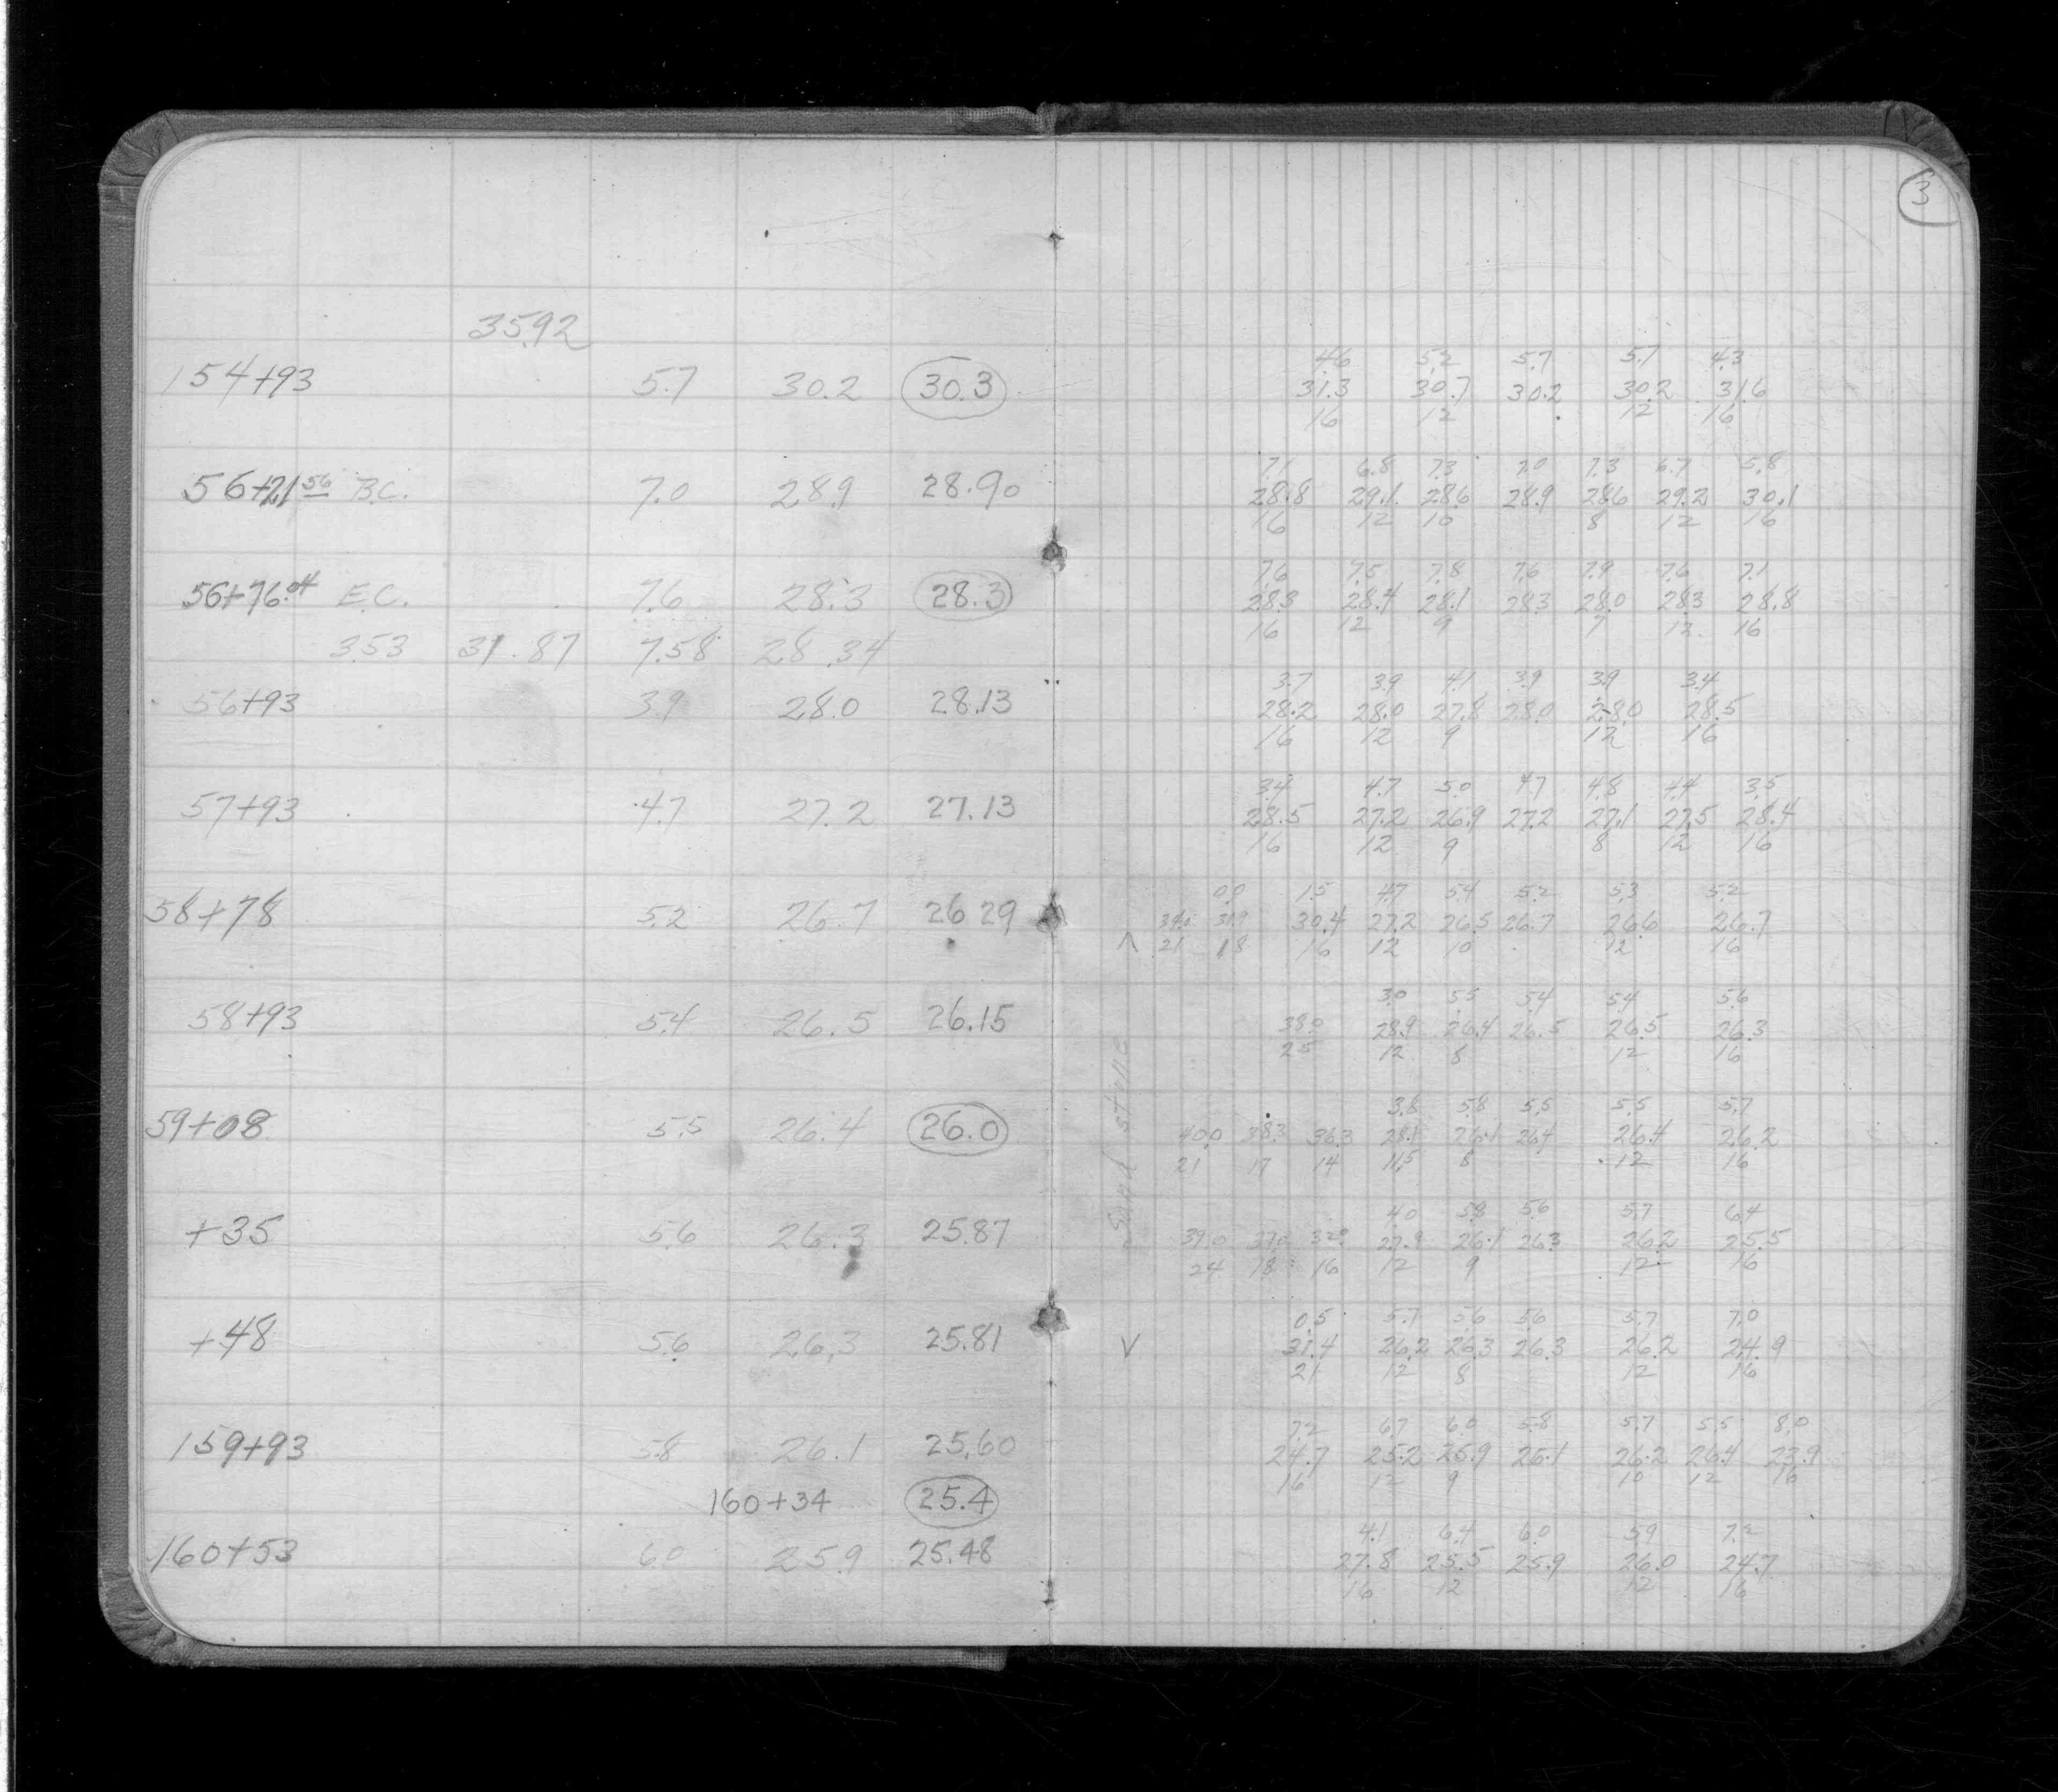 3
35.92
4.6 5.2 5.7 5.7 4.3
154+93 5.7 30.2 30.3 31.3 30.7 30.2 30.2 31.6
16 12 12 16
7.1 6.8 7.3 7.0 7.3 6.7 5.8
56+21 56 B.C. 7.0 28.9 28.90 28.8 29.1 28.6 28.9 28.6 29.2 30.1
16 12 10 8 12 16
7.6 7.5 7.8 7.6 7.9 7.6 7.1
56+76.04 E.C. 7.6 28.3 28.3 28.3 28.4 28.1 28.3 28.0 28.3 28.8
16 12 9 7 12 16
3.53 31.87 7.58 28.34
3.7 3.9 4.1 3.9 3.9 3.4
56+93 3.9 28.0 28.13 28.2 28.0 27.8 28.0 28.0 28.5
16 12 9 12 16
3.4 4.7 5.0 4.7 4.8 4.4 3.5
57+93 4.7 27.2 27.13 28.5 27.2 26.9 27.2 27.1 27.5 28.4
16 12 9 8 12 16
0.0 1.5 4.7 5.4 5.2 5.3 5.2
58+78 5.2 26.7 26 29 34.0 31.9 30.4 27.2 26.5 26.7 26.6 26.7
21 18 16 12 10 12 16
3.0 5.5 5.4 5.4 5.6
58+93 5.4 26.5 26.15 38.0 28.9 26.4 26.5 26.5 26.3
25 12 8 12 16
Sand stone
3.8 5.8 5.5 5.5 5.7
59+08 5.5 26.4 26.0 40.0 38.3 36.3 28.1 26.1 26.4 26.4 26.2
21 17 14 11.5 8 12 16
4.0 5.8 5.6 5.7 6.4
+35 5.6 26.3 25.87 39.0 37.0 27.9 26.1 26.3 26.2 25.5
24 18 16 12 9 12 16
0.5 5.7 5.6 5.6 5.7 7.0
+48 5.6 26.3 25.81 31.4 26.2 26.3 26.3 26.2 24.9
21 12 8 12 16
7.2 6.7 6.0 5.8 5.7 5.5 8.0
159+93 5.8 26.1 25.60 24.7 25.2 25.9 26.1 26.2 26.4 23.9
16 12 9 10 12 16
160+34 25.4
4.1 6.4 6.0 5.9 7.2
160+53 6.0 25.9 25.48 27.8 25.5 25.9 26.0 24.7
16 12 12 16